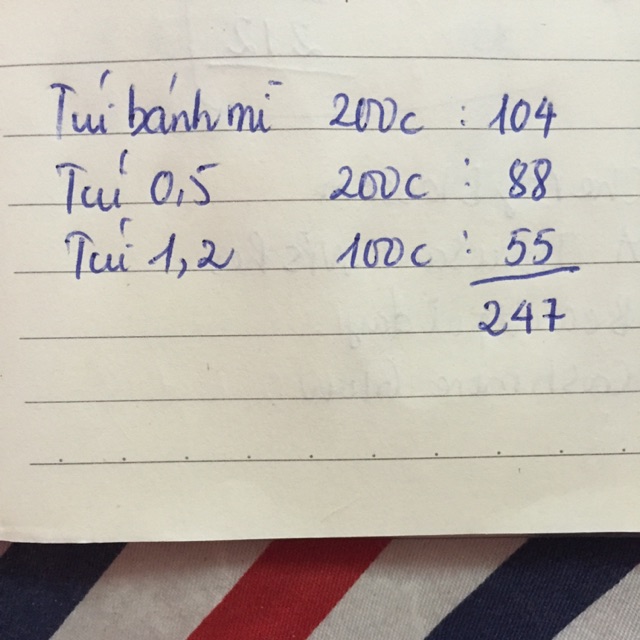 Túi bánh mì 200c : 104
Túi 0,5 200c : 88
Túi 1,2 100c : 55
247